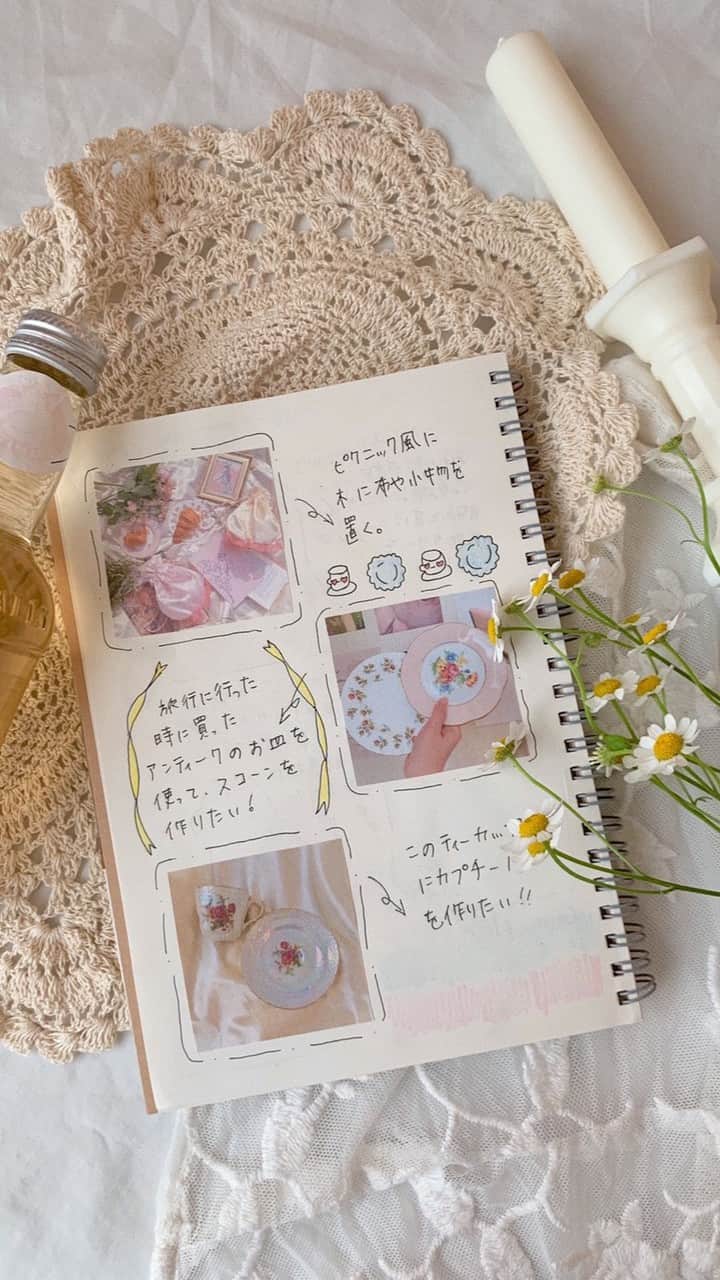 ピクニック風に
木に本や小物を
置く。
旅行に行った
時に買った
アンティークのお皿を
使って、スコーンを
作りたい!
このティーカッ
にカプチーノ
を作りたい!!